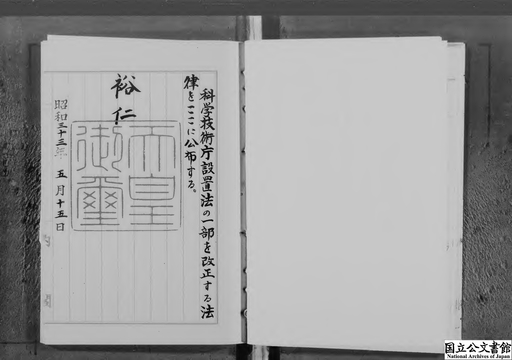 科学技術庁設置法の一部を改正する法
律をここに公布する。
裕仁
天皇
御璽
昭和三十三年五月十五日
国立公文書館
National Archives of Japan